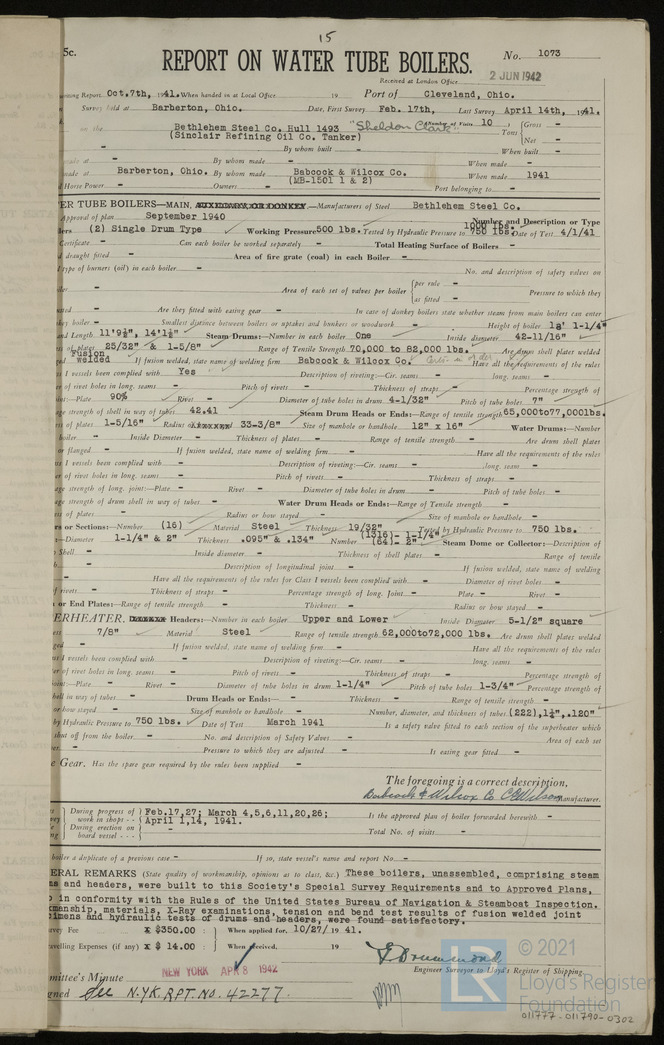 15
5c.
REPORT ON WATER TUBE BOILERS.
No. 1073
Received at London Office
2 JUN 1942
Report. Oct.7th, 1941. When handed in at Local Office 19 Port of Cleveland, Ohio.
Survey held at Barberton, Ohio. Date, First Survey Feb. 17th, Last Survey April 14th, 1941.
on the Bethlehem Steel Co. Hull 1493 "Sheldon Clark" Number of Visits 10
(Sinclair Refining Oil Co. Tanker)
Tons { Gross -
Net -
- By whom built - When built -
made at - By whom made - When made -
made at Barberton, Ohio. By whom made Babcock & Wilcox Co. When made 1941
(MB-1501 1 & 2)
Horse Power - Owners - Port belonging to -
ER TUBE BOILERS—MAIN, AUXILIARY, OR DONKEY.—Manufacturers of Steel Bethlehem Steel Co.
Approval of plan September 1940 Number and Description or Type
(2) Single Drum Type Working Pressure 500 lbs. Tested by Hydraulic Pressure to 1000 lbs. 750 lbs. Date of Test 4/1/41
Certificate - Can each boiler be worked separately - Total Heating Surface of Boilers -
draught fitted - Area of fire grate (coal) in each Boiler -
type of burners (oil) in each boiler - No. and description of safety valves on
boiler - Area of each set of valves per boiler { per rule - Pressure to which they
as fitted -
Are they fitted with easing gear - In case of donkey boilers state whether steam from main boilers can enter
boiler - Smallest distance between boilers or uptakes and bunkers or woodwork - Height of boiler 18' 1-1/4"
and Length 11'9½", 14'1½" Steam Drums:—Number in each boiler One Inside diameter 42-11/16"
of plates 25/32" & 1-5/8" Range of Tensile Strength 70,000 to 82,000 lbs. Are drum shell plates welded
Fusion welded If fusion welded, state name of welding firm Babcock & Wilcox Co. Have all the requirements of the rules
I vessels been complied with Yes Description of riveting:—Cir. seams - long. seams -
of rivet holes in long. seams - Pitch of rivets - Thickness of straps - Percentage strength of
Plate 90% Rivet - Diameter of tube holes in drum 4-1/32" Pitch of tube holes 7"
strength of shell in way of tubes 42.41 Steam Drum Heads or Ends:—Range of tensile strength 65,000to77,000lbs.
of plates 1-5/16" Radius 33-3/8" Size of manhole or handhole 12" x 16" Water Drums:—Number
boiler - Inside Diameter - Thickness of plates - Range of tensile strength - Are drum shell plates
or flanged - If fusion welded, state name of welding firm - Have all the requirements of the rules
I vessels been complied with - Description of riveting:—Cir. seams - long. seams -
of rivet holes in long. seams - Pitch of rivets - Thickness of straps -
strength of long. joint:—Plate - Rivet - Diameter of tube holes in drum - Pitch of tube holes -
strength of drum shell in way of tubes - Water Drum Heads or Ends:—Range of Tensile strength -
of plates - Radius or how stayed - Size of manhole or handhole -
or Sections:—Number (16) Material Steel Thickness 19/32" Tested by Hydraulic Pressure to 750 lbs.
Diameter 1-1/4" & 2" Thickness .095" & .134" Number (1316)- 1-1/4" (64)- 2" Steam Dome or Collector:—Description of
Shell - Inside diameter - Thickness of shell plates - Range of tensile
- Description of longitudinal joint - If fusion welded, state name of welding
- Have all the requirements of the rules for Class I vessels been complied with - Diameter of rivet holes -
rivets - Thickness of straps - Percentage strength of long. Joint - Plate - Rivet -
or End Plates:—Range of tensile strength - Thickness - Radius or how stayed -
ERHEATER. Headers:—Number in each boiler Upper and Lower Inside Diameter 5-1/2" square
7/8" Material Steel Range of tensile strength 62,000to72,000 lbs. Are drum shell plates welded
- If fusion welded, state name of welding firm - Have all the requirements of the rules
I vessels been complied with - Description of riveting:—Cir. seams - long. seams -
of rivet holes in long. seams - Pitch of rivets - Thickness of straps - Percentage strength of
joint:—Plate - Rivet - Diameter of tube holes in drum 1-1/4" Pitch of tube holes 1-3/4" Percentage strength of
shell in way of tubes - Drum Heads or Ends:— - Thickness - Range of tensile strength -
or how stayed - Size of manhole or handhole - Number, diameter, and thickness of tubes (222),1¼",.120"
by Hydraulic Pressure to 750 lbs. Date of Test March 1941 Is a safety valve fitted to each section of the superheater which
shut off from the boiler - No. and description of Safety Valves - Area of each set
- Pressure to which they are adjusted - Is easing gear fitted -
Gear. Has the spare gear required by the rules been supplied -
The foregoing is a correct description,
Babcock & Wilcox Co Manufacturer.
During progress of work in shops - - Feb.17,27; March 4,5,6,11,20,26; April 1,14, 1941. Is the approved plan of boiler forwarded herewith -
During erection on board vessel - - - - Total No. of visits -
boiler a duplicate of a previous case - If so, state vessel's name and report No. -
ERAL REMARKS (State quality of workmanship, opinions as to class, &c.) These boilers, unassembled, comprising steam
and headers, were built to this Society's Special Survey Requirements and to Approved Plans,
in conformity with the Rules of the United States Bureau of Navigation & Steamboat Inspection.
manship, materials, X-Ray examinations, tension and bend test results of fusion welded joint
imens and hydraulic tests of drums and headers, were found satisfactory.
Fee $350.00 : When applied for, 10/27/19 41.
velling Expenses (if any) $ 14.00 : When received, 19
Engineer Surveyor to Lloyd's Register of Shipping.
mittee's Minute NEW YORK APR 8 1942
gned See N.YK.RPT.NO. 42277.
LR
© 2021
Lloyd's Register
Foundation
011777-011790-0302